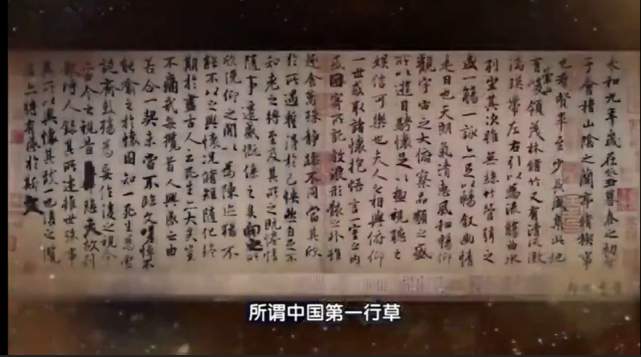 永和九年歲在癸丑暮春之初會
于會稽山陰之蘭亭脩稧事
也羣賢畢至少長咸集此地
有崇山峻領茂林脩竹又有清流激
湍暎帶左右引以為流觴曲水
列坐其次雖無絲竹管弦之
盛一觴一詠亦足以暢敘幽情
是日也天朗氣清惠風和暢仰
觀宇宙之大俯察品類之盛
所以遊目騁懷足以極視聽之
娛信可樂也夫人之相與俯仰
一世或取諸懷抱悟言一室之內
或因寄所託放浪形骸之外雖
趣舍萬殊靜躁不同當其欣
於所遇蹔得於己快然自足不
知老之將至及其所之既惓情
隨事遷感慨係之矣向之所
欣俛仰之閒以為陳迹猶不
能不以之興懷況脩短隨化終
期於盡古人云死生亦大矣豈
不痛哉每攬昔人興感之由
若合一契未嘗不臨文嗟悼不
能喻之於懷固知一死生為虛
誕齊彭殤為妄作後之視今
亦由今之視昔悲夫故列
敘時人錄其所述雖世殊事
異所以興懷其致一也後之攬
者亦將有感於斯文
所谓中国第一行草